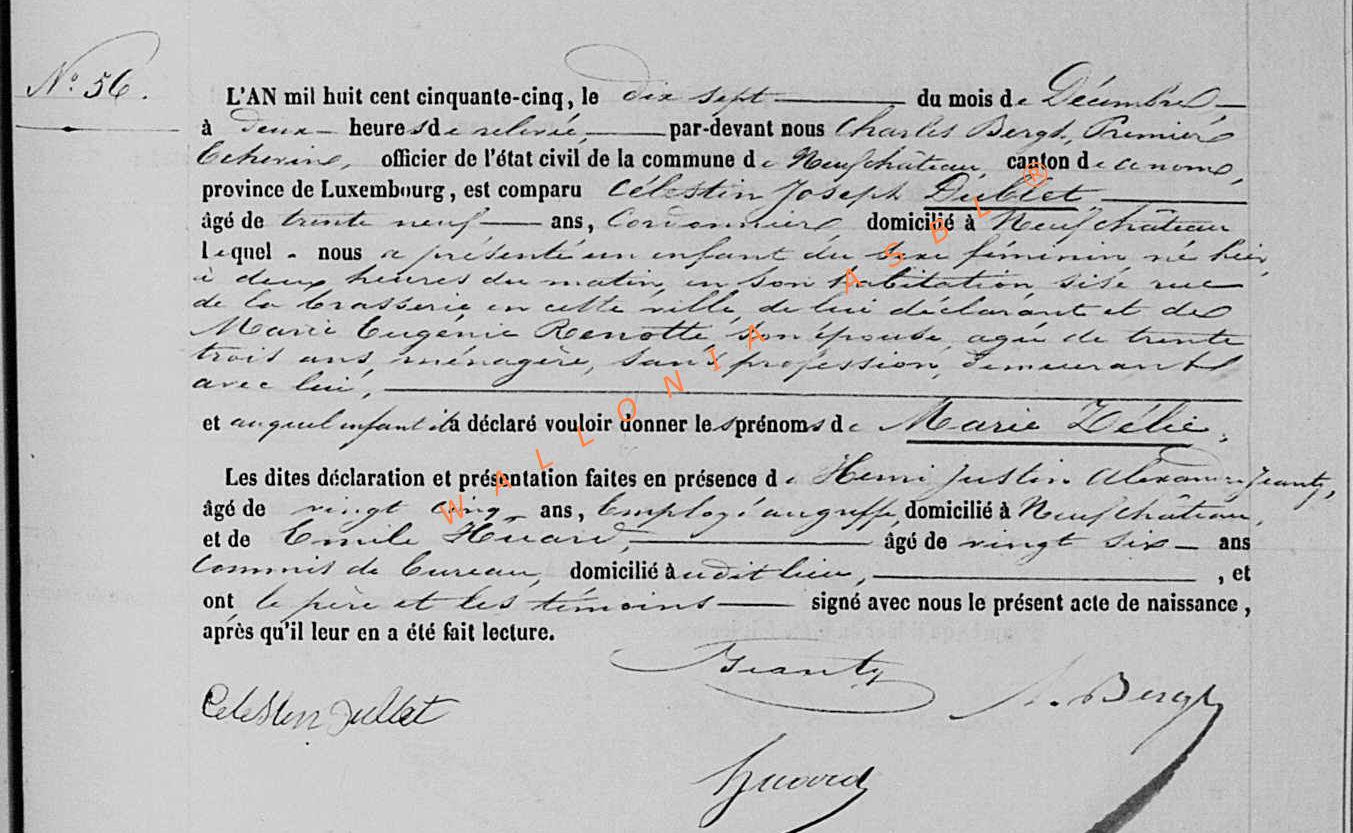 N° 56.
L'AN mil huit cent cinquante-cinq, le dix sept du mois de Décembre
à deux heures de relevée, par-devant nous Charles Bergh, Premier
Echevin, officier de l'état civil de la commune de Neufchâteau, canton de ce nom,
province de Luxembourg, est comparu Célestin Joseph Dublet,
âgé de trente neuf ans, Cordonnier domicilié à Neufchâteau
lequel nous a présenté un enfant du sexe féminin né hier,
à deux heures du matin, en son habitation sise rue
de la brasserie en cette ville, de lui déclarant et de
Marie Eugénie Renotte, son épouse, agée de trente
trois ans, ménagère, sans profession, demeurant
avec lui,
et auquel enfant il a déclaré vouloir donner les prénoms de Marie Zélie.
Les dites déclaration et présentation faites en présence de Henri Justin Alexandre Jeanty,
âgé de vingt cinq ans, Employé au greffe, domicilié à Neufchâteau,
et de Emile Huard, âgé de vingt six ans
Commis de bureau, domicilié audit lieu, , et
ont le père et les témoins signé avec nous le présent acte de naissance,
après qu'il leur en a été fait lecture.
Jeanty
Celestin
Huard
WALLONIA ASBL ®